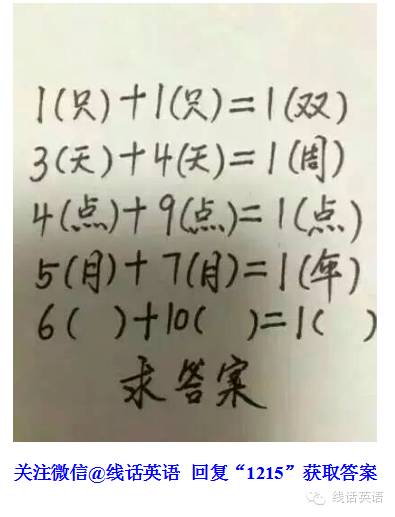 1(只)+1(只)=1(双)
3(天)+4(天)=1(周)
4(点)+9(点)=1(点)
5(月)+7(月)=1(年)
6( )+10( )=1( )
求答案
关注微信@线话英语 回复“1215”获取答案
线话英语